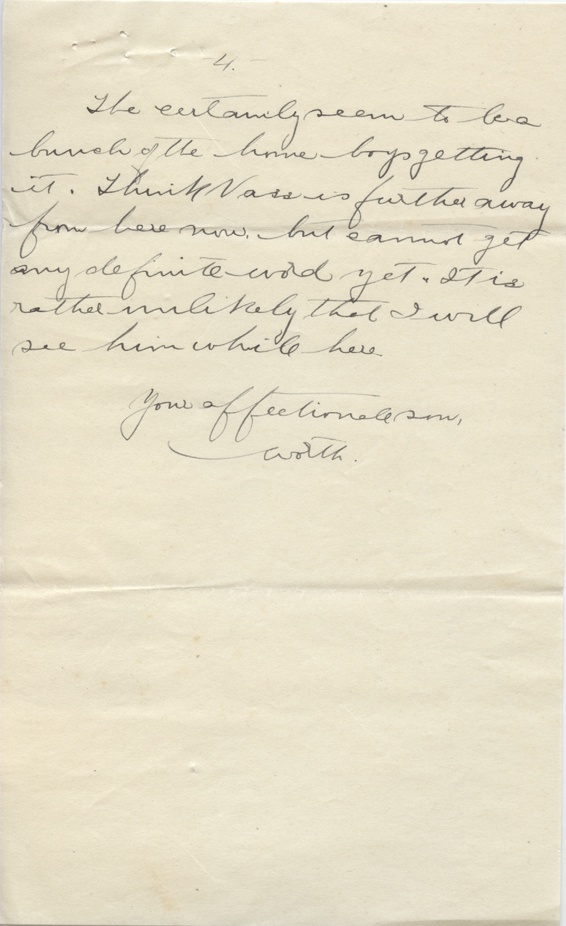 4.-
The certainly seem to be a
bunch of the home boys getting
it. Think Vass is further away
from here now, but cannot get
any definite word yet. It is
rather unlikely that I will
see him while here
Your affectionate son,
Worth.